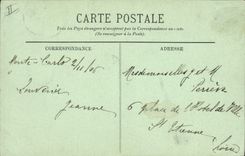 II
CARTE POSTALE
Tous les Pays étrangers n'acceptent pas la Correspondance au recto.
(Se renseigner à la Poste)
CORRESPONDANCE
ADRESSE
Monte-Carlo 2/11/05
Souvenir
Jeanne
Mesdemoiselles et M
6 place de l'Hotel de Ville
St Etienne
Loire